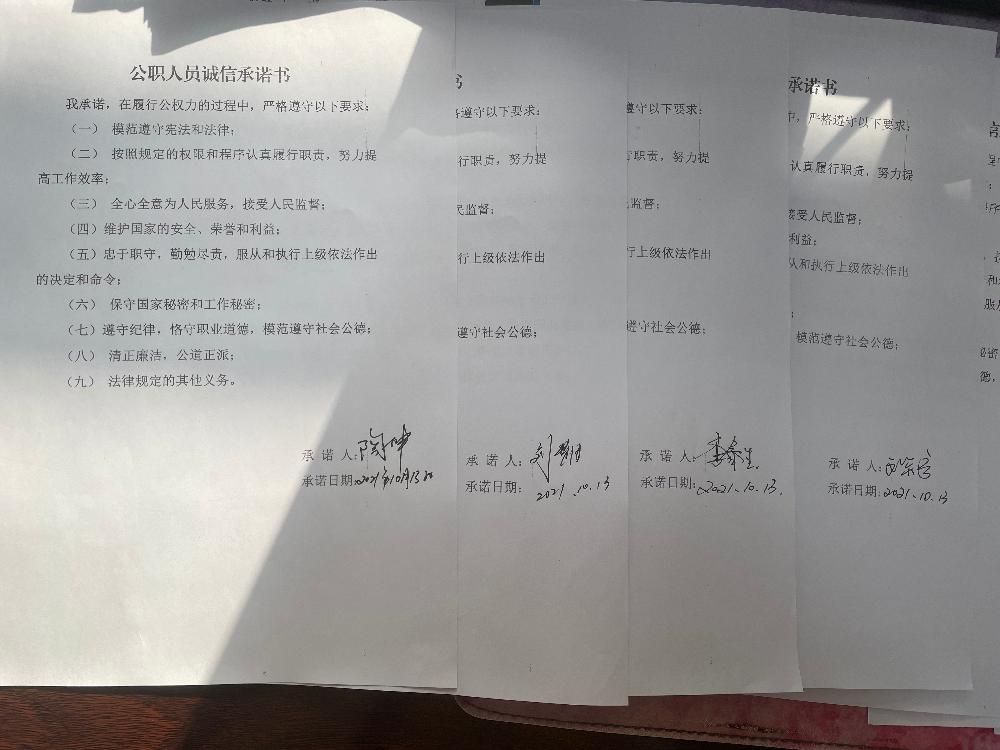 公职人员诚信承诺书
我承诺，在履行公权力的过程中，严格遵守以下要求：
（一） 模范遵守宪法和法律；
（二） 按照规定的权限和程序认真履行职责，努力提
高工作效率；
（三） 全心全意为人民服务，接受人民监督；
（四）维护国家的安全、荣誉和利益；
（五）忠于职守，勤勉尽责，服从和执行上级依法作出
的决定和命令；
（六） 保守国家秘密和工作秘密；
（七）遵守纪律，恪守职业道德，模范遵守社会公德；
（八） 清正廉洁，公道正派；
（九） 法律规定的其他义务。
承 诺 人：陶坤
承诺日期：2021年10月13日
书
格遵守以下要求：
行职责，努力提
民监督；
行上级依法作出
遵守社会公德；
承 诺 人：刘
承诺日期：2021.10.13
遵守以下要求：
行职责，努力提
监督；
行上级依法作出
遵守社会公德；
承 诺 人：李
承诺日期：2021.10.13.
承诺书
中，严格遵守以下要求：
认真履行职责，努力提
接受人民监督；
利益；
从和执行上级依法作出
；
模范遵守社会公德；
承 诺 人：
承诺日期：2021.10.13
德，